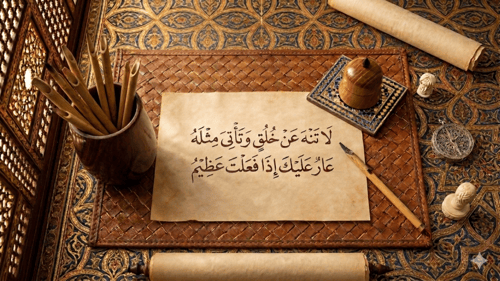 لَا تَنْهَ عَنْ خُلُقٍ وَتَأْتِىَ مِثْلَهُ
عَارٌ عَلَيْكَ إِذَا فَعَلْتَ عَظِيْمُ